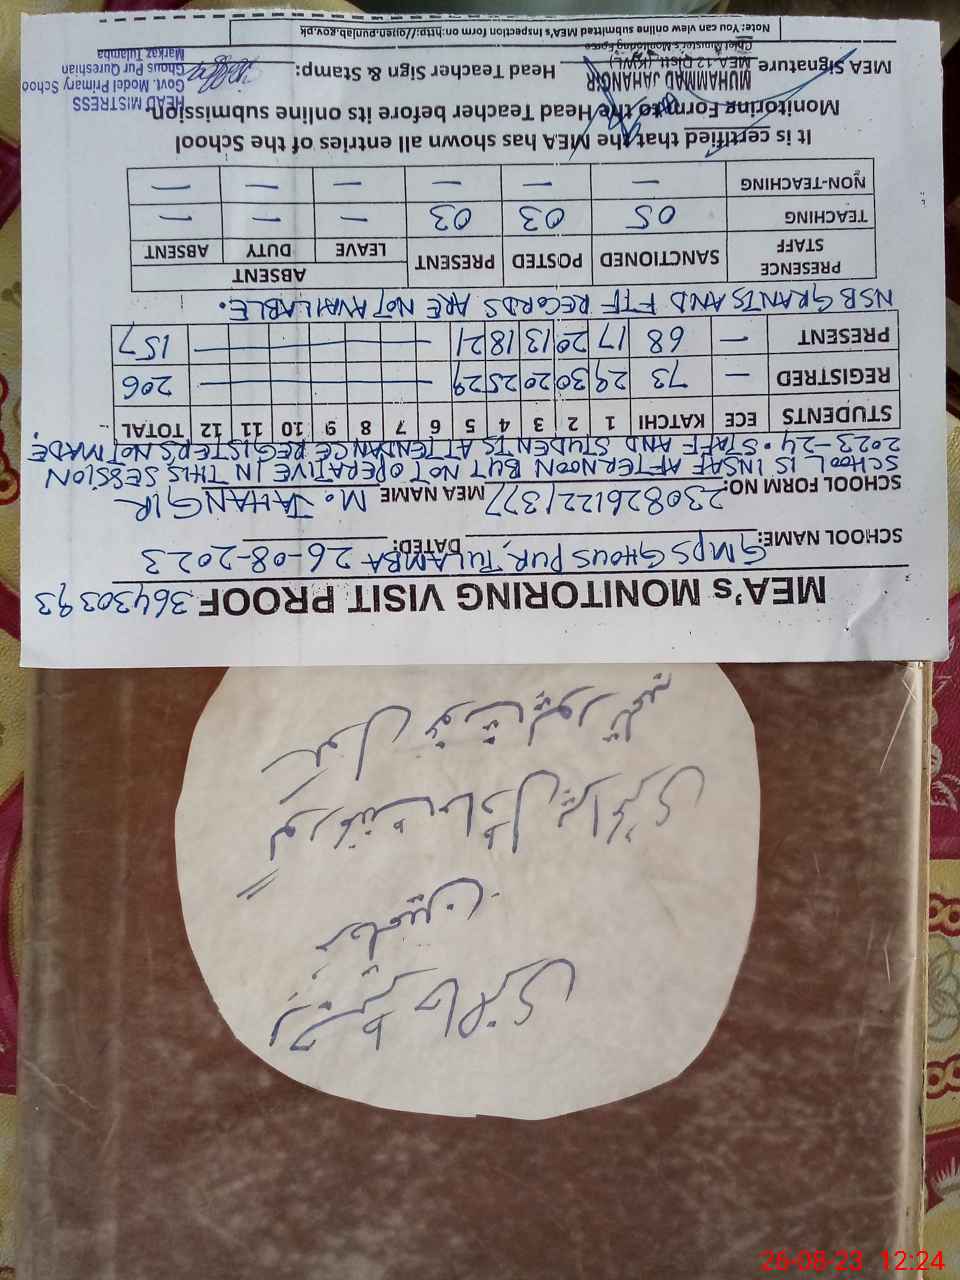 MEA's MONITORING VISIT PROOF 36430393
SCHOOL NAME: GMPS GHOUS PUR, TULAMBA DATED: 26-08-2023
SCHOOL FORM NO: 2308261221377 MEA NAME M. JAHANGIR
SCHOOL IS INSAF AFTERNOON BUT NOT OPERATIVE IN THIS SESSION
2023-24. STAFF AND STUDENTS ATTENDANCE REGISTERS NOT MADE.
STUDENTS ECE KATCHI 1 2 3 4 5 6 7 8 9 10 11 12 TOTAL
REGISTRED — 73 29 30 20 25 29 — 206
PRESENT — 68 17 20 13 18 21 — 157
NSB GRANTS AND FTF RECORDS ARE NOT AVAILABLE.
PRESENCE STAFF SANCTIONED POSTED PRESENT ABSENT
LEAVE DUTY ABSENT
TEACHING 05 03 03 — — —
NON-TEACHING — — — — — —
It is certified that the MEA has shown all entries of the School
Monitoring Form to the Head Teacher before its online submission.
MEA Signature Head Teacher Sign & Stamp:
MUHAMMAD JAHANGIR
MEA-12 Distt (KWL)
Chief Minister's Monitoring Force
HEAD MISTRESS
Govt. Model Primary Schoo
Ghous Pur Qureshian
Markaz Tulamba
Note: You can view online submitted MEA's Inspection form on:http://open.punjab.gov.pk
26-08-23 12:24